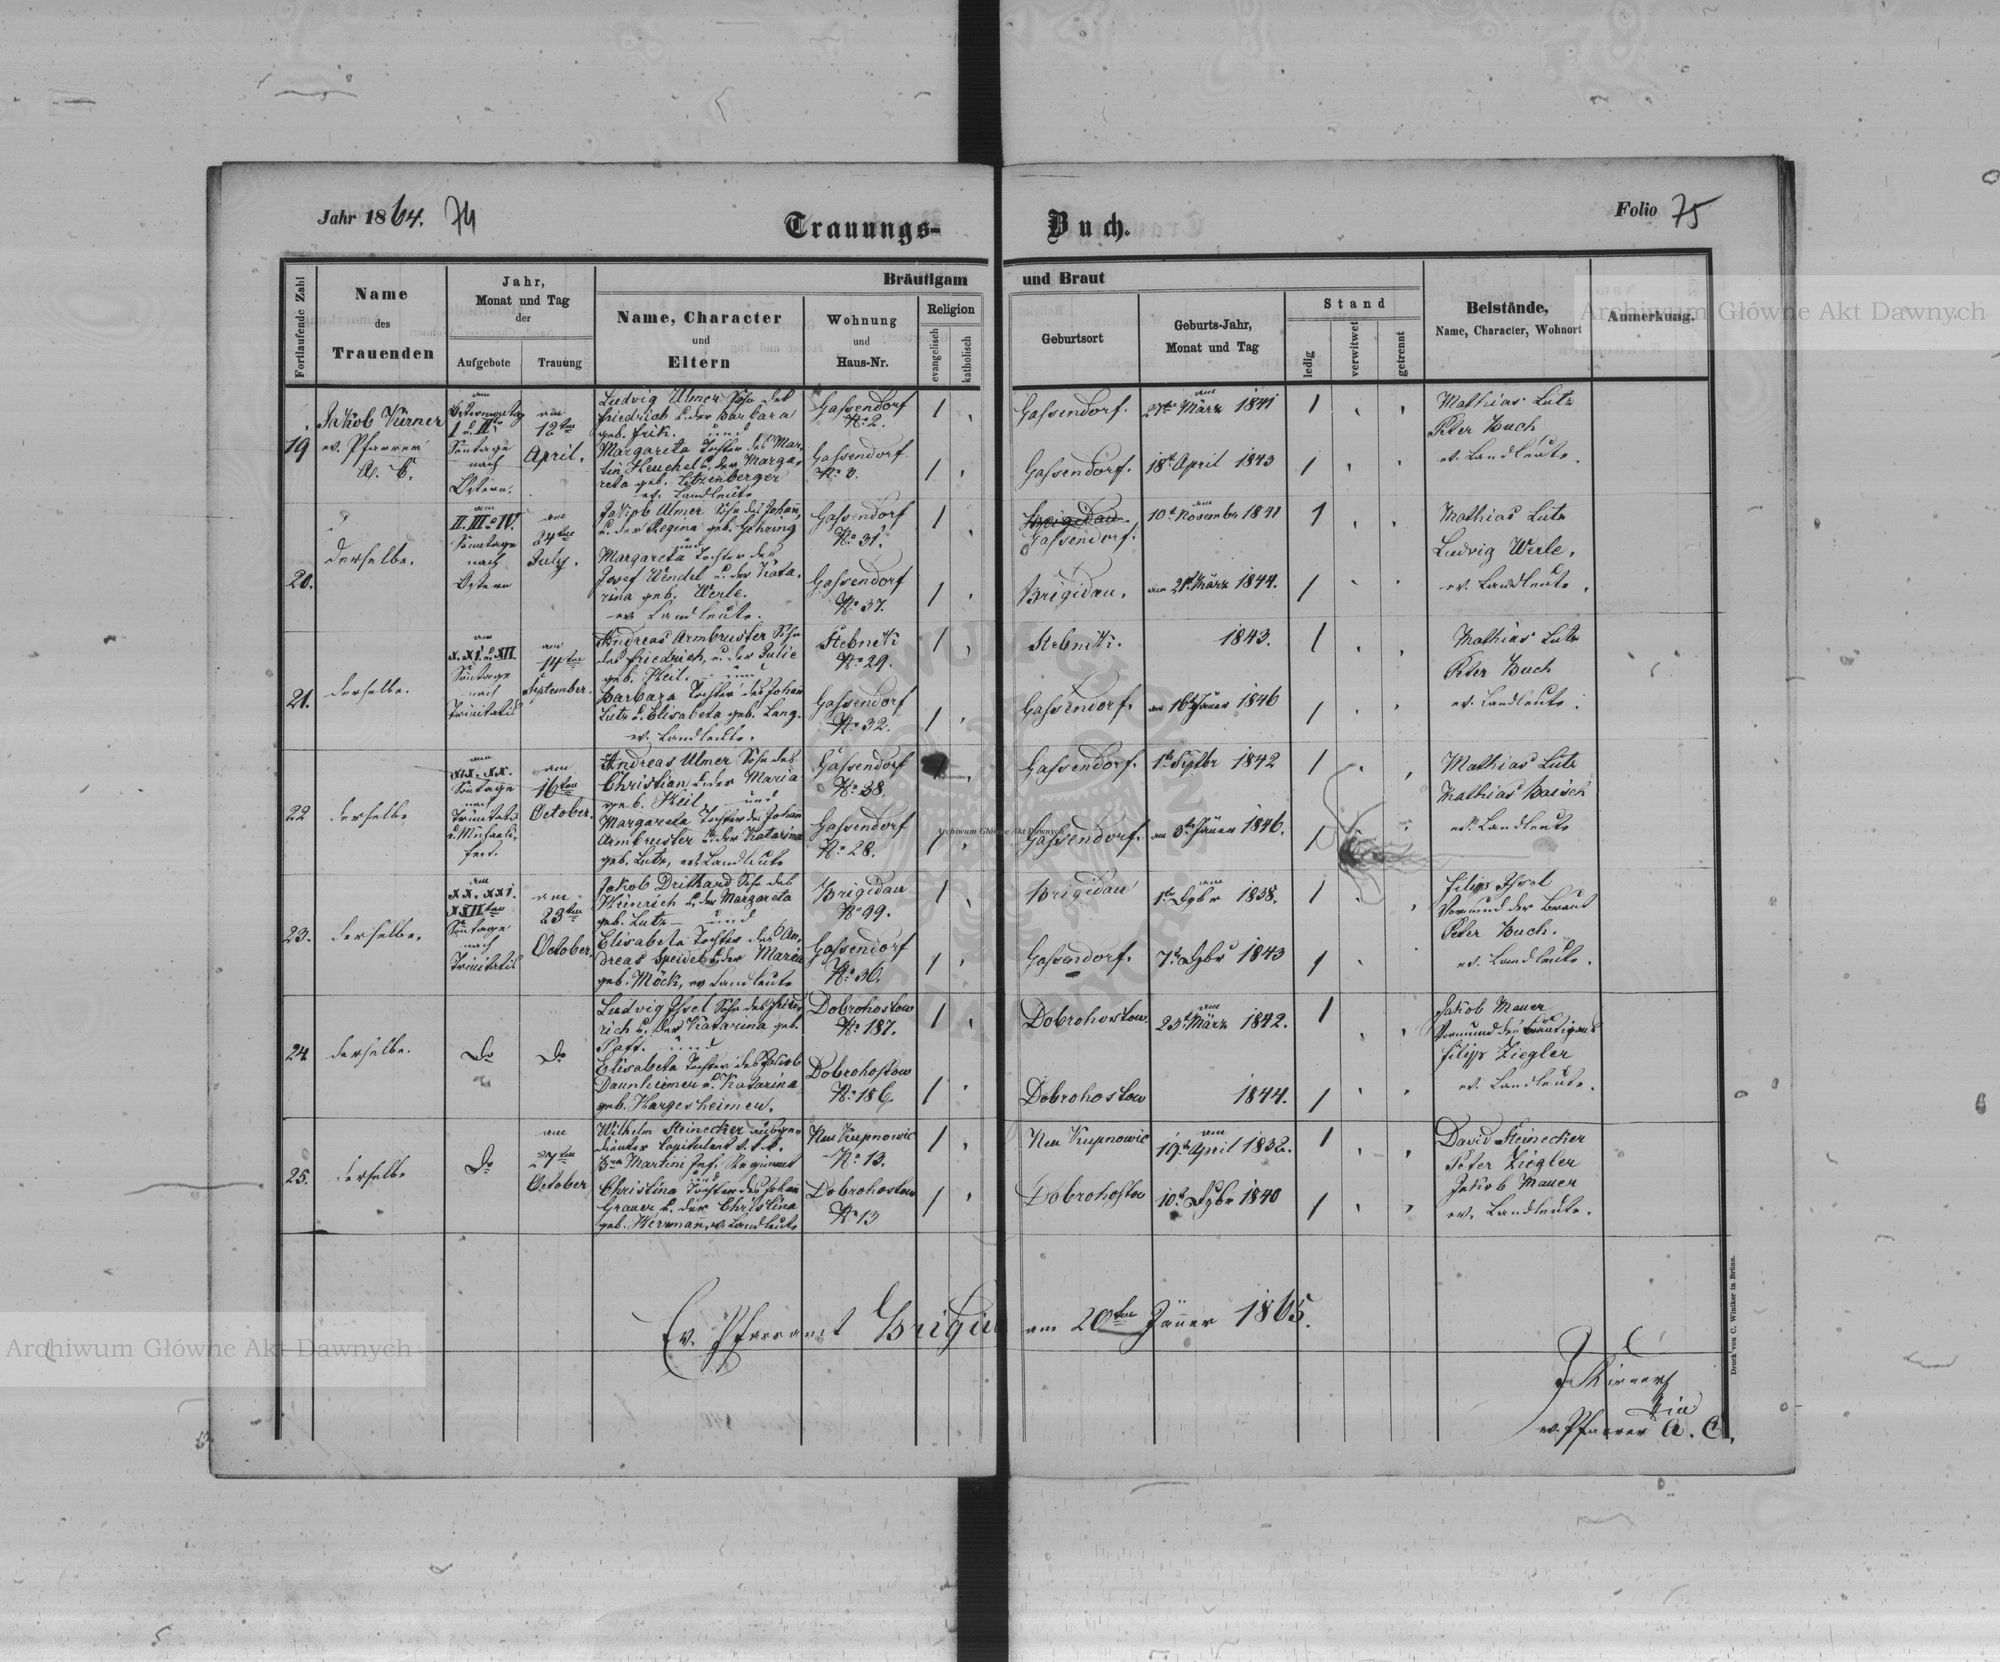 Jahr 1864. 74
Trauungs-
Buch.
Folio 75
Fortlaufende Zahl
Name
des
Trauenden
Jahr,
Monat und Tag
der
Aufgebote
Trauung
Bräutigam
und Braut
Name, Character
und
Eltern
Wohnung
und
Haus-Nr.
Religion
evangelisch
katholisch
Geburtsort
Geburts-Jahr,
Monat und Tag
Stand
ledig
verwitwet
getrennt
Beistände,
Name, Character, Wohnort
Anmerkung.
19
Jakob Kirner
ev. Pfarrer
A. C.
am
Ostermontag
I u. II
Sontage
nach
Ostern.
am
12ten
April.
Ludvig Ulmer Sohn des
Friedrich u. der Barbara
geb. Frik. und
Margareta Tochter des Mar,
tin Heuchel u. der Marga,
reta geb. Litzenberger
ev. Landleute
Gassendorf
No 2.
Gassendorf
No 3.
Gassendorf.
Gassendorf.
am
27ten März 1841
18t April 1843
Mathias Lutz
Peter Buch
ev. Landleute.
20.
derselbe.
am
II. III. u. IV.
Sontage
nach
Ostern
am
24ten
July.
Jakob Ulmer Sohn des Johan,
u. der Regina geb. Gehring
und
Margareta Tochter des
Josef Wendel u. der Kata,
rina geb. Werle.
ev. Landleute.
Gassendorf
No 31.
Gassendorf
No 37.
Brigidau
Gassendorf.
Brigidau.
am
10t November 1841
am 21t März 1844.
Mathias Lutz
Ludvig Werle,
ev. Landleute.
21.
derselbe.
am
X. XI. u. XII.
Sontage
nach
Trinitatis
am
14ten
September.
Andreas Armbruster Sohn
des Friedrich, u. der Julie
geb. Keil. und
Barbara Tochter des Johan
Lutz u. Elisabeta geb. Lang.
ev. Landleute.
Stebnik
No 29.
Gassendorf
No 32.
Stebnik.
Gassendorf.
1843.
am 16t Jäner 1846
Mathias Lutz
Peter Buch
ev. Landleute.
22
derselbe
am
XIX. XX.
Sontage
nach
Trinitatis
u. Michaelis
fest.
am
16ten
October.
Andreas Ulmer Sohn des
Christian u. der Maria
geb. Keil, und
Margareta Tochter des Johan
Armbruster u. der Katarina
geb. Lutz, ev. Landleute
Gassendorf
No 38.
Gassendorf
No 28.
Gassendorf.
Gassendorf.
1t Septbr 1842
am 3t Jäner 1846.
Mathias Lutz
Mathias Baisch
ev. Landleute
23.
derselbe.
am
XX. XXI.
XXIIten
Sontage
nach
Trinitatis
am
23ten
October.
Jakob Drithard Sohn des
Heinrich u. der Margareta
geb. Lutz und
Elisabeta Tochter des An,
dreas Speidel u. der Maria
geb. Möck, ev Landleute
Brigidau
No 99.
Gassendorf
No 36.
Brigidau
Gassendorf.
am
1838.
1843
Filipp Issel
Vormund der Braut
Peter Buch.
ev. Landleute.
24
derselbe.
Do
Do
Ludvig Issel Sohn des Fried,
rich u. der Katarina geb.
Paff. und
Elisabeta Tochter des Jakob
Daunheimer u. Katarina
geb. Hargesheimer.
Dobrohostow
No 187.
Dobrohostow
No 186
Dobrohostow.
Dobrohostow
am
23t März 1842.
1844.
Jakob Mauer
Vormund des Bräutigams
Filipp Ziegler
ev. Landleute.
25.
derselbe
Do
am
27ten
October
Wilhelm Steinecker ausge
dienter Capitulant
Martini Inf. Regiment
und
Christina Tochter des Johan
Grauer, u. der Christina
geb. Herrman, ev. Landleute
Neu Kupnowic
No 13.
Dobrohostow
No 13
Neu Kupnowic
Dobrohostow
am
19t April 1832.
1840
David Steinecker
Peter Ziegler
Jakob Mauer
ev. Landleute.
Ev. Pfarramt Brigid
am 20ten Jänner 1865.
J Kirner
ev. Pfarrer A. C.
Druck von C. Winiker in Brünn.
Archiwum Główne Akt Dawnych
Archiwum Główne Akt Dawnych
Archiwum Główne Akt Dawnych